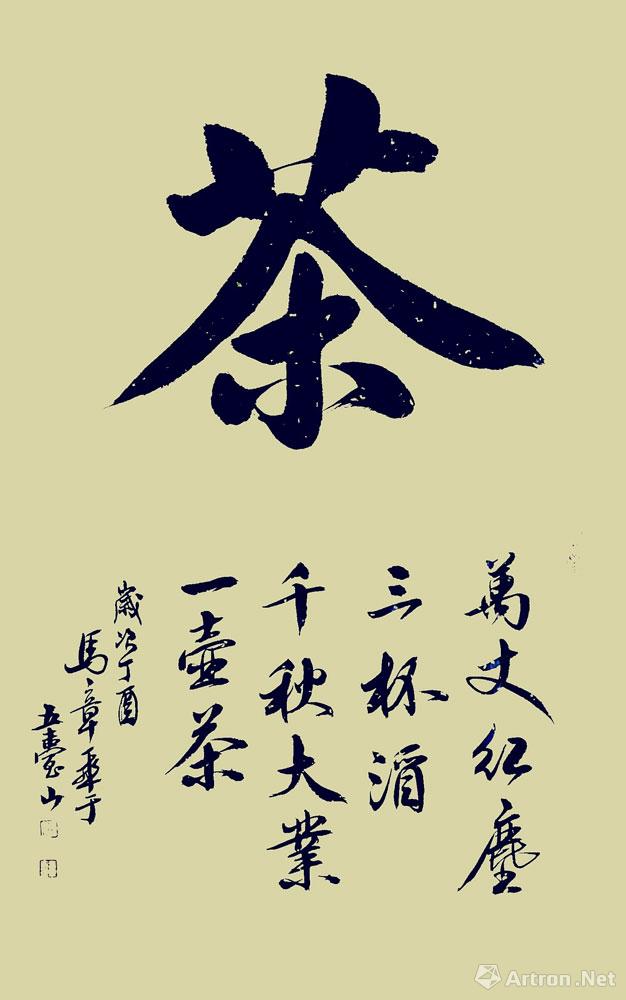 茶
萬丈紅塵
三杯酒
千秋大業
一壺茶
歲次丁酉
馬章乘于
五臺山
Artron.Net